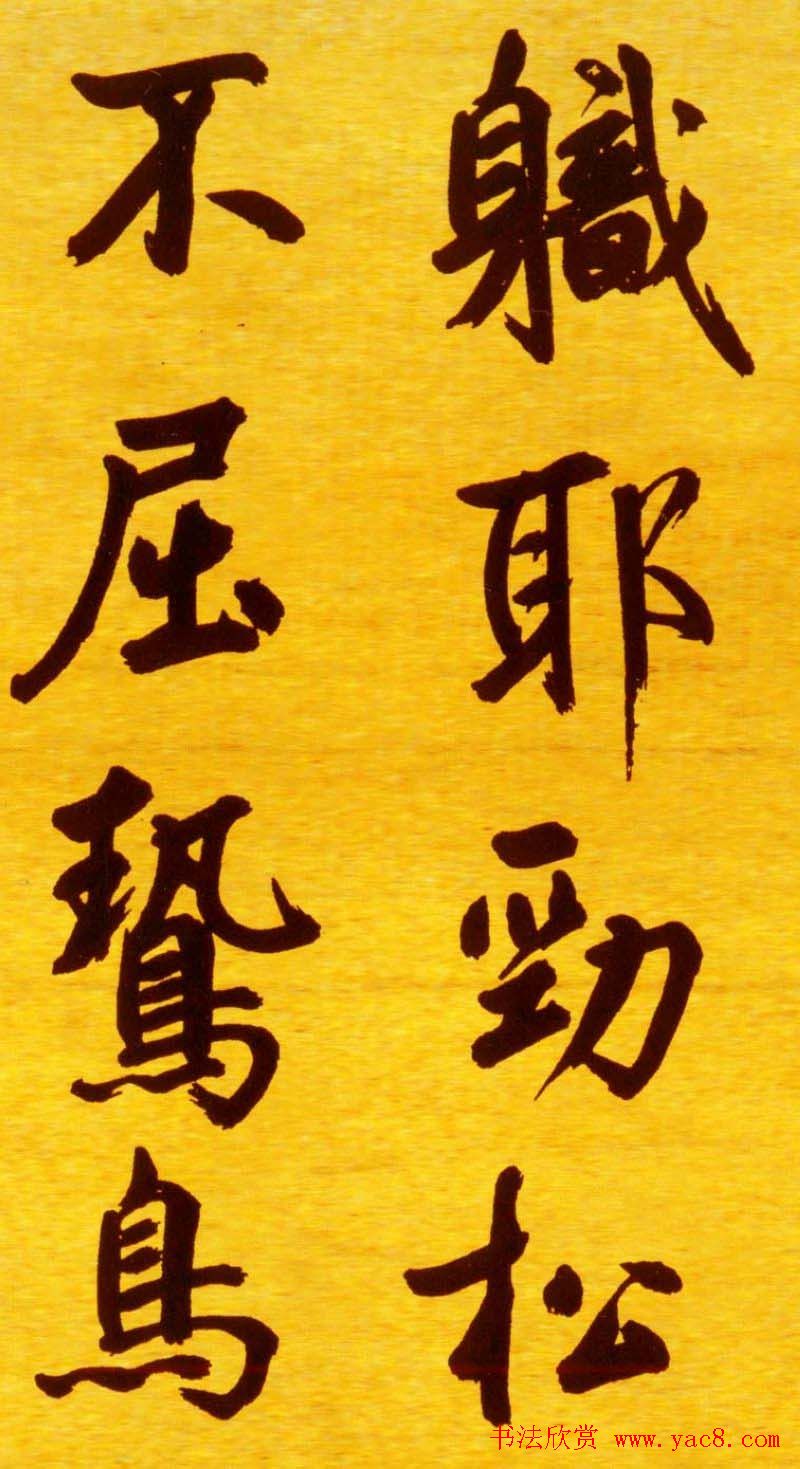 軄耶勁松
不屈鷙鳥
书法欣赏 www.yac8.com